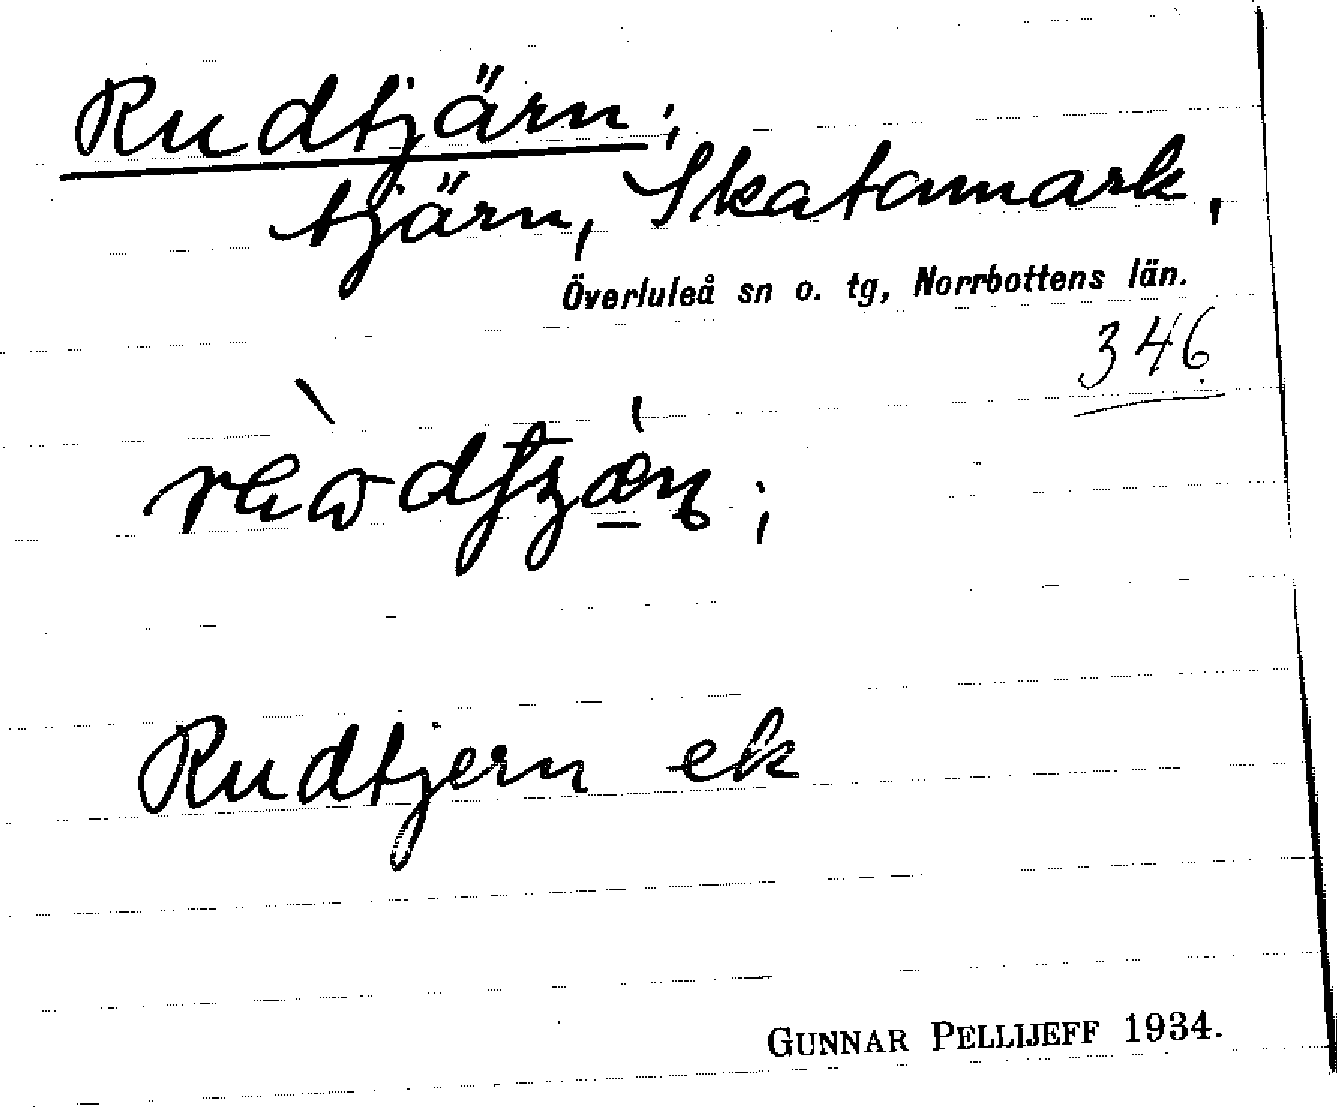 Rudtjärn;
tjärn, Skatamark,
Överluleå sn o. tg, Norrbottens län.
346
Rudtjern ek
GUNNAR PELLIJEFF 1934.